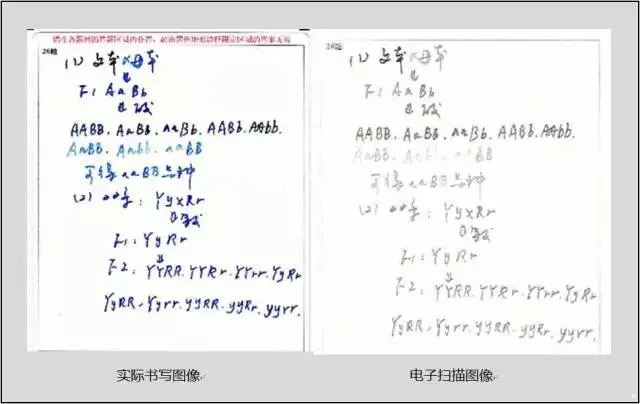 请在各题目的答题区域内作答，超出黑色矩形边框限定区域的答案无效
26题
(1) 父本×母本
↓
F1 AaBb
↓
AABB、AaBb、aaBb、AABb、AAbb.
AaBB、Aabb、aaBB
可得aaBB品种
(2) : Yy×Rr
↓
F1: YyRr
↓
F2: YYRR.YYRr.YYrr.YyRr
YyRR、Yyrr.yyRR.yyRr.yyrr.
26题
(1) 父本×母本
↓
F1 AaBb
↓
AABB、AaBb、aaBb、AABb、AAbb.
AaBB、Aabb、aaBB
可得aaBB品种
(2) : Yy×Rr
↓
F1: YyRr
↓
F2: YYRR.YYRr.YYrr.YyRr
YyRR、Yyrr.yyRR.yyRr.yyrr.
实际书写图像
电子扫描图像